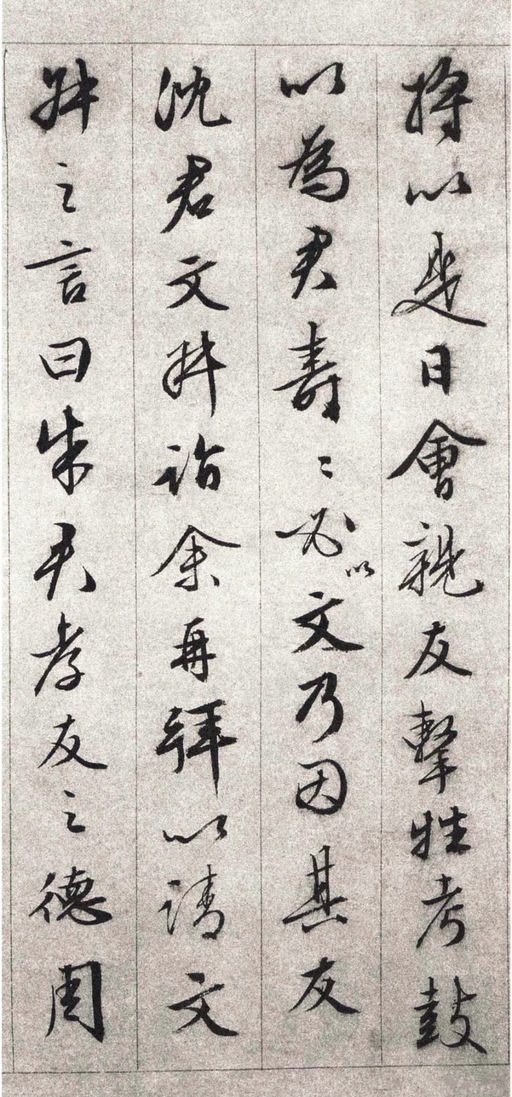 將以是日會親友擊牲考鼓
以為君壽〻必以文乃因其友
沈君文叔詣余再拜以請文
叔之言曰朱君孝友之德周